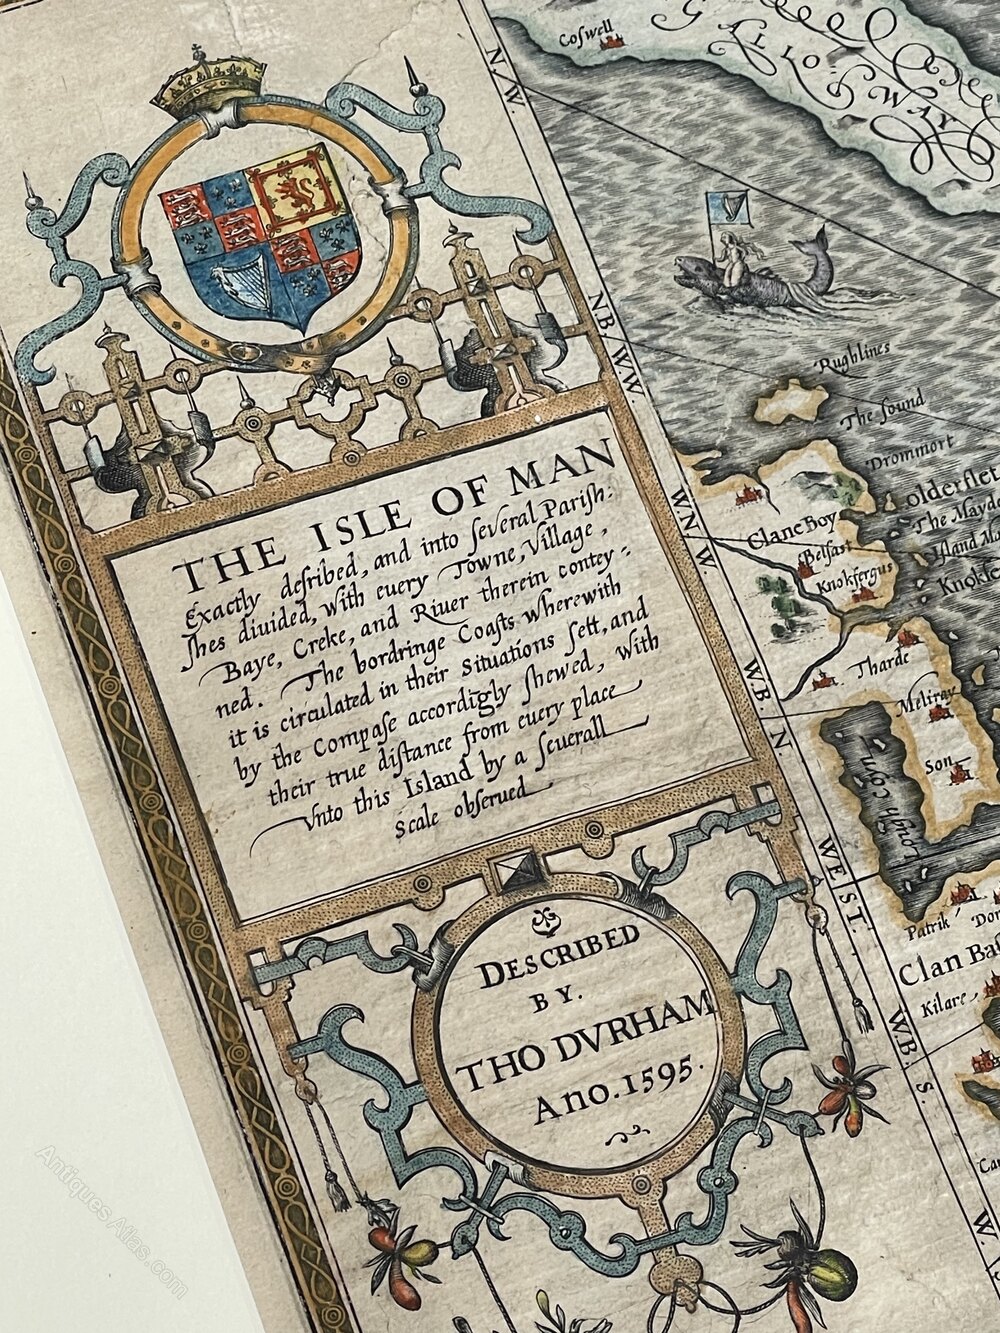 THE ISLE OF MAN
Exactly desribed, and into several Parish:
shes diuided, with euery Towne, Village,
Baye, Creke, and Riuer therein contey-
ned. The bordringe Coasts wherewith
it is circulated in their Situations sett, and
by the Compase accordigly shewed, with
their true distance from euery place
Vnto this Island by a seuerall
Scale obserued
DESCRIBED
BY.
THO DVRHAM
Ano. 1595.
N/W.
N.B/W.W.
W.N.W.
W.B. N
WEST.
W.B. S.
W
Coswell
GALLOWAY
Rughlines
The sound
Drommort
olderflet
The Mayd
Island Ma
Knokfer
Clane Boy
Belfast
Knokfergus
Tharde
Meliray
Son
Lough Coyne
Patrik
Don
Clan Ba
Kilare
Ca
AntiquesAtlas.com